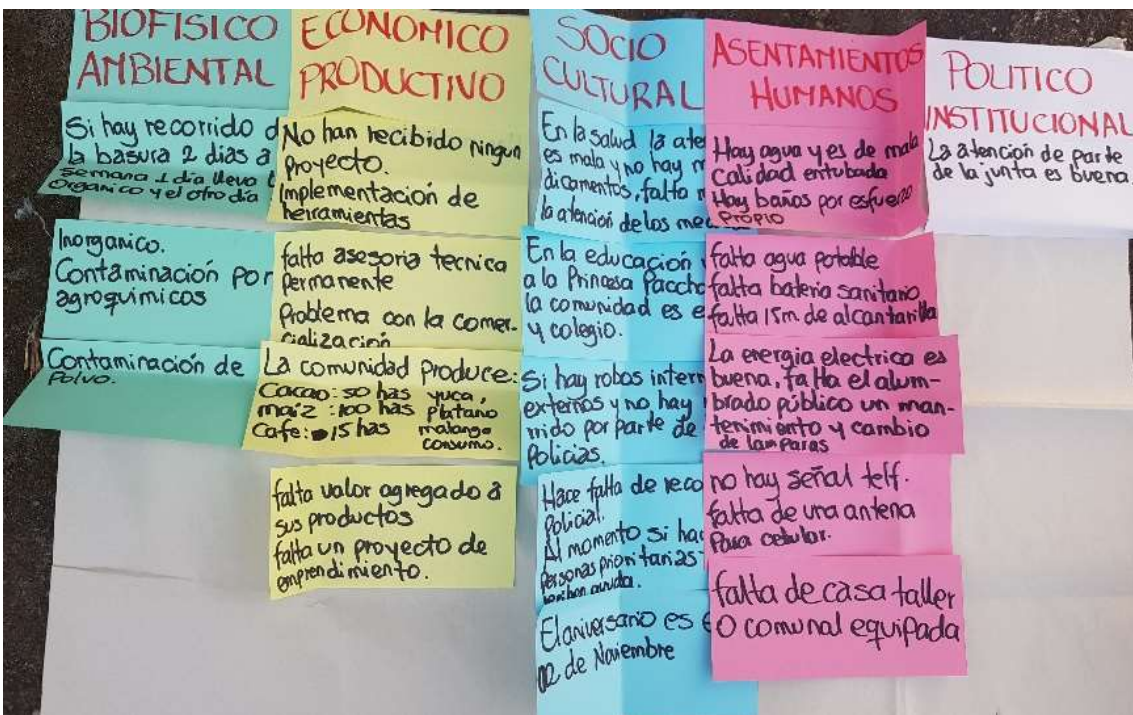 BIOFISICO
AMBIENTAL
Si hay recorrido d
la basura 2 dias a
semana 1 dia lleva
Organico y el otro dia
Inorganico.
Contaminación por
agroquimicos
Contaminación de
Polvo.
ECONOMICO
PRODUCTIVO
No han recibido ningun
proyecto.
Implementación de
herramientas
falta asesoria tecnica
permanente
Problema con la comer-
cialización
La comunidad produce:
Cacao: 50 has yuca,
maiz: 100 has platano
Cafe: 15 has malanga
consumo.
falta valor agregado a
sus productos
falta un proyecto de
emprendimiento.
SOCIO
CULTURAL
En la salud la ate
es mala y no hay m
dicamentos, falta
la atención de los med
En la educación
a la Princesa Paccha
la comunidad es e
y colegio.
Si hay robos intern
externos y no hay
rrido por parte de
Policias.
Hace falta de reco
Policial.
Al momento si hay
Personas prioritarias
reciban ayuda.
El aniversario es e
02 de Noviembre
ASENTAMIENTOS
HUMANOS
Hay agua y es de mala
calidad entubada
Hay baños por esfuerzo
propio
falta agua potable
falta bateria sanitario
falta 15m de alcantarilla
La energia electrica es
buena, falta el alum-
brado público un man-
tenimiento y cambio
de lamparas
no hay señal telf.
falta de una antena
Para celular.
falta de casa taller
O comunal equipada
POLITICO
INSTITUCIONAL
La atencion de parte
de la junta es buena.